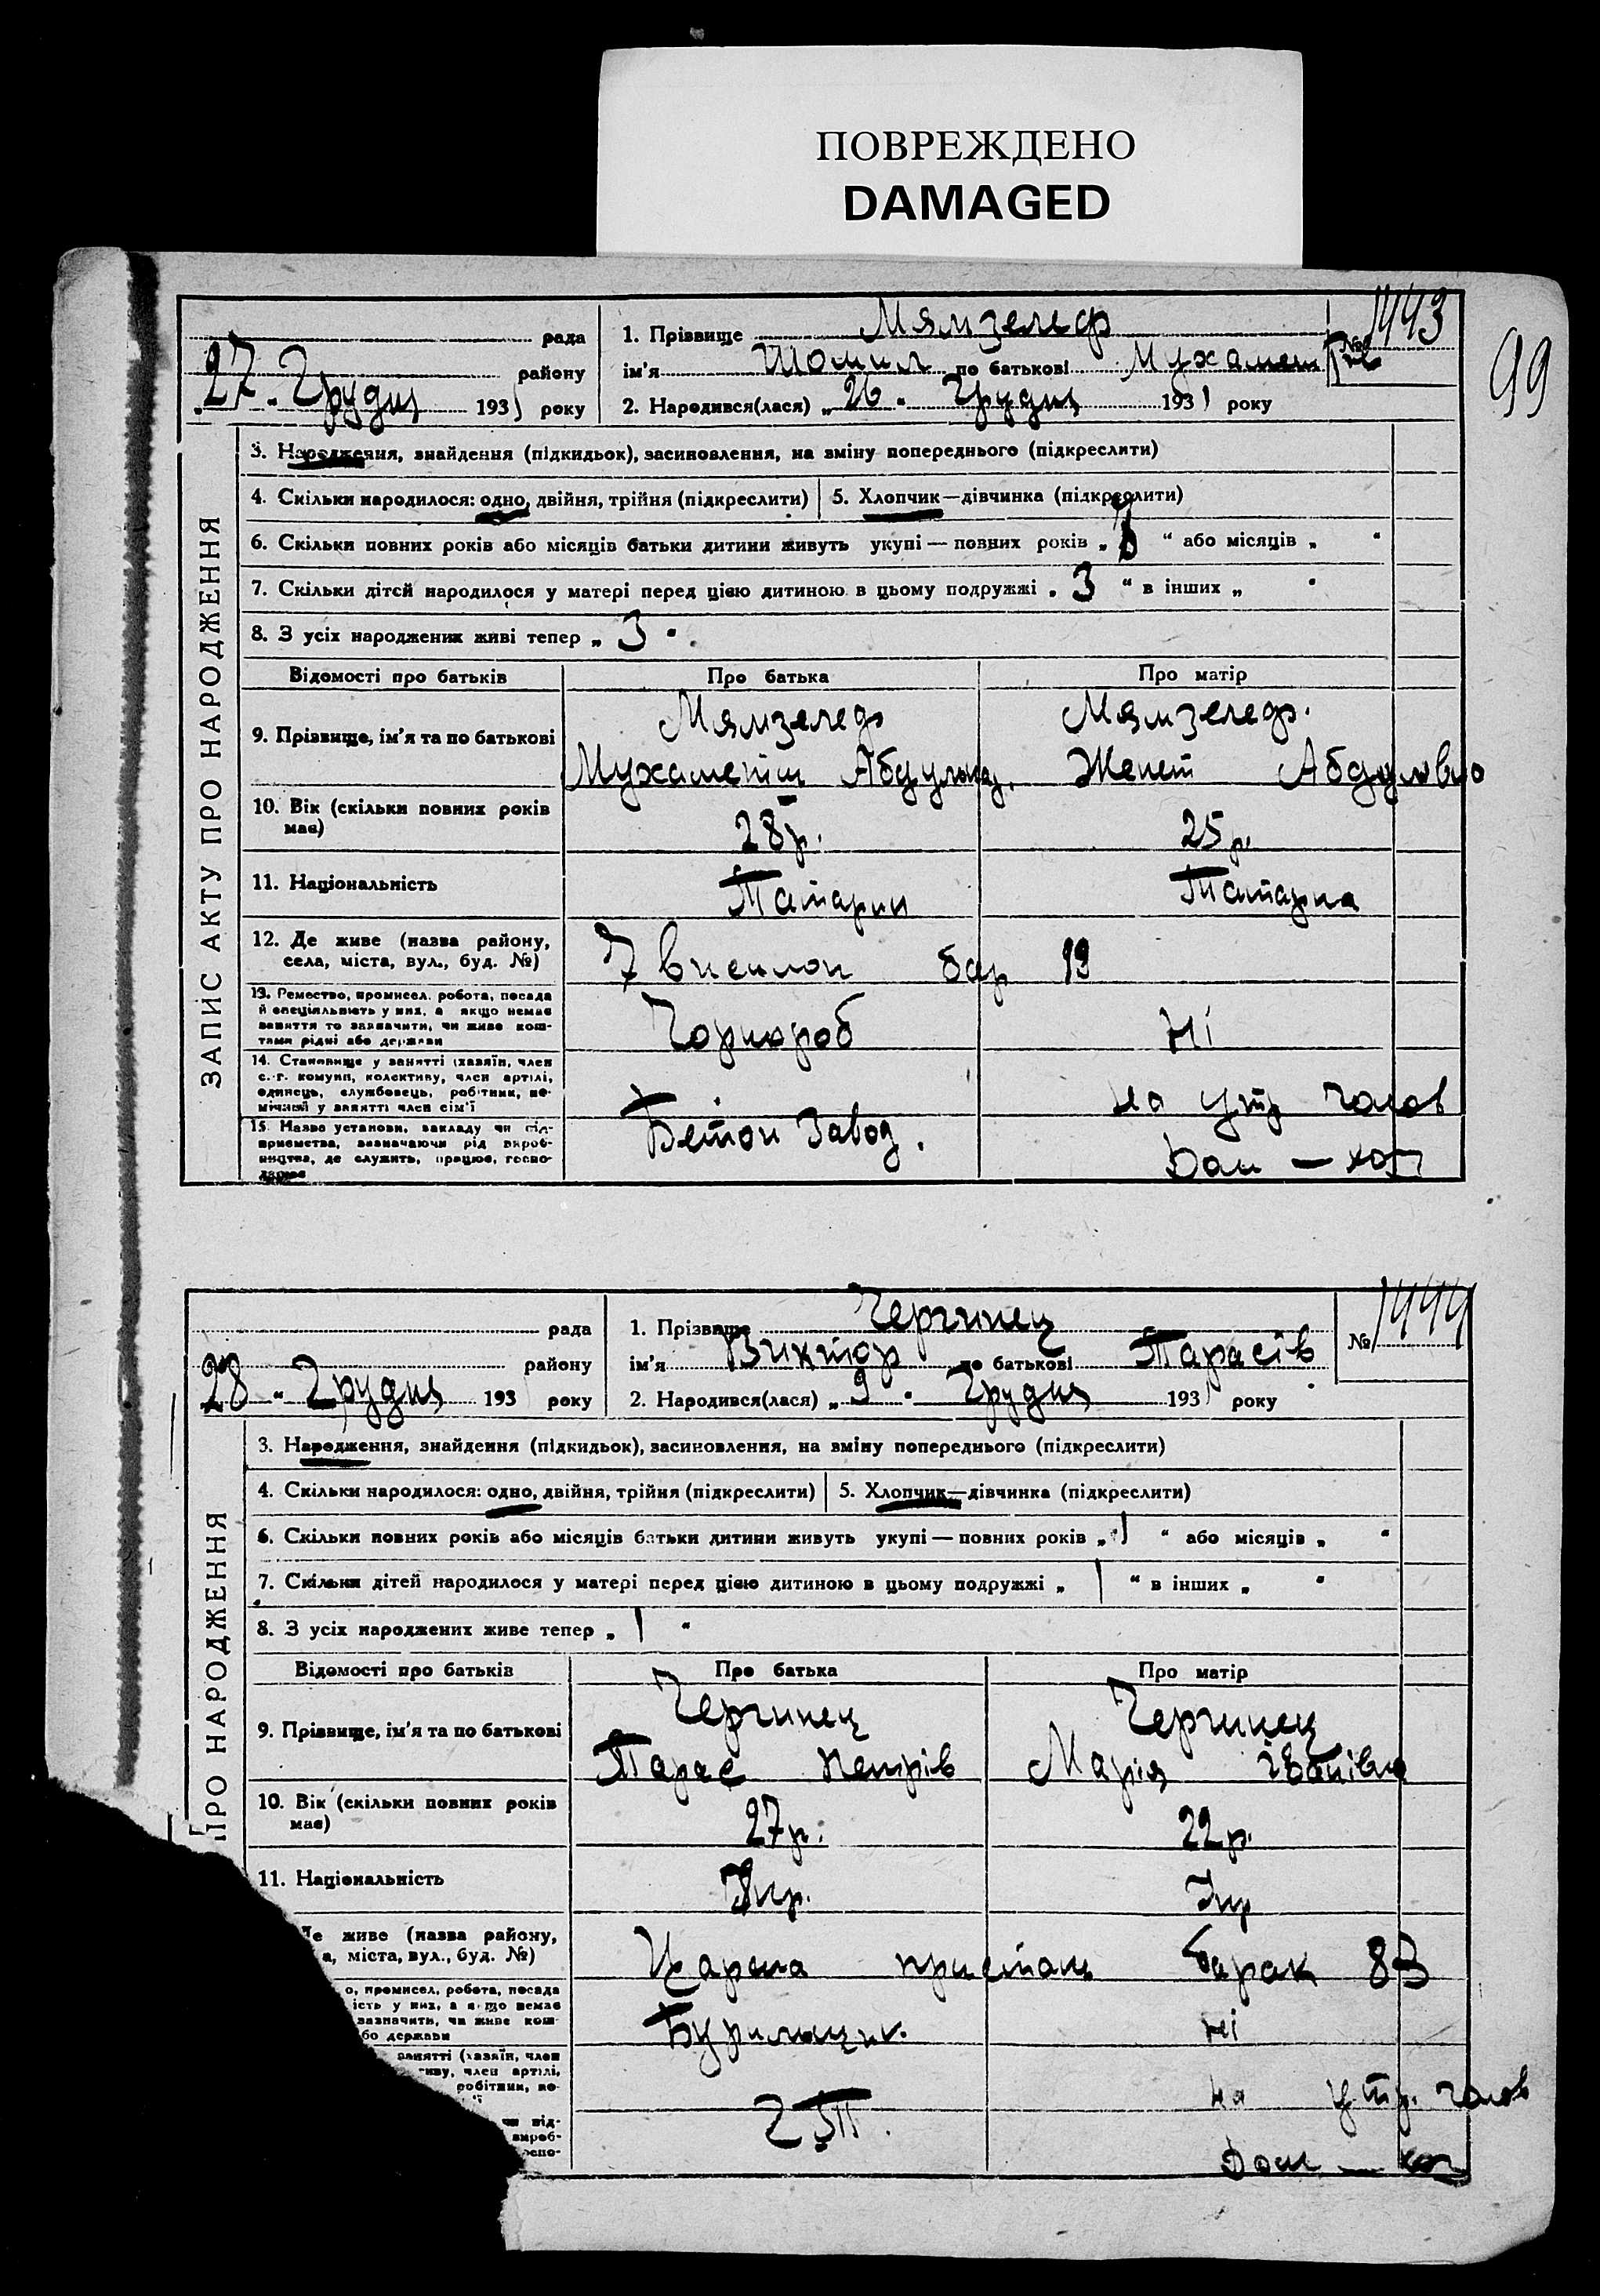 ПОВРЕЖДЕНО
DAMAGED
99
рада
району
27 - Грудня 1931 року
1. Прізвище Мямзелеф
ім'я Шомил по батькові Мухамет
2. Народився(лася) „26" Грудня 1931 року
№ 1443
ЗАПИС АКТУ ПРО НАРОДЖЕННЯ
3. Народження, знайдення (підкидьок), засиновлення, на зміну попереднього (підкреслити)
4. Скільки народилося: одно, двійня, трійня (підкреслити) 5. Хлопчик—дівчинка (підкреслити)
6. Скільки повних років або місяців батьки дитини живуть укупі — повних років „ " або місяців „ "
7. Скільки дітей народилося у матері перед цією дитиною в цьому подружжі „3" в інших „ "
8. З усіх народжених живі тепер „3"
Відомості про батьків Про батька Про матір
9. Прізвище, ім'я та по батькові
Мямзелеф Мямзелеф.
Мухаметш Абдула Женет Абдуловно
10. Вік (скільки повних років має) 28р. 25р.
11. Національність Татарин Татарка
12. Де живе (назва району, села, міста, вул., буд. №) 7 виселон бар 19
13. Ремество, промисел, робота, посада й спеціяльність у них, а якщо немає заняття то зазначити, чи живе коштами рідні або держави Чорнороб Ні
14. Становище у занятті (хазяїн, член с.-г. комуни, колективу, член артілі, одинець, службовець, робітник, помічний у занятті член сім'ї на утр чолов
15. Назва установи, закладу чи підприємства, визначаючи рід виробництва, де служить, працює, господарює Бетон Завод. Дом — хоз
рада
району
28 - Грудня 193 року
1. Прізвище Чергинец
ім'я Виктор по батькові Тарасів
2. Народився(лася) „9" Грудня 1931 року
№ 1444
ПРО НАРОДЖЕННЯ
3. Народження, знайдення (підкидьок), засиновлення, на зміну попереднього (підкреслити)
4. Скільки народилося: одно, двійня, трійня (підкреслити) 5. Хлопчик—дівчинка (підкреслити)
6. Скільки повних років або місяців батьки дитини живуть укупі — повних років „1" або місяців „ "
7. Скільки дітей народилося у матері перед цією дитиною в цьому подружжі „1" в інших „ "
8. З усіх народжених живе тепер „1"
Відомості про батьків Про батька Про матір
9. Прізвище, ім'я та по батькові
Чергинец Чергинец
Тарас Петрів Марія Іванівна
10. Вік (скільки повних років має) 27р. 22р.
11. Національність Укр. Укр
Де живе (назва району, а, міста, вул., буд. №) Карена пристань барак 83
о, промисел, робота, посада ість у них, а якщо немає зазначить, чи живе кош- бо держави Бурильщик Ні
занятті (хазяїн, член тиву, член артілі, робітник, по- на утр. чолов
чи під- вироб- оспо- Дом — хоз